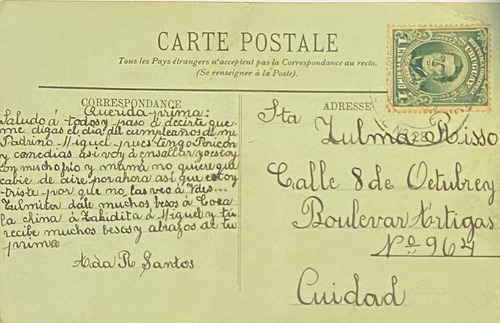 CARTE POSTALE
Tous les Pays étrangers n'acceptent pas la Correspondance au recto.
(Se renseigner à la Poste).
CORRESPONDANCE
Querida prima:
Saludo á todos y paso á decirte que
me digas el dia del cumpleaños de mi
Padrino Miguel pues tengo Pericón
y comedias asi voy á ensallar yo estoy
con mucho frio y mamá no quier que
cabie de aire por ahora asi que estoy
triste por que no las veo á Vdes
Zulmita dale muchos besos á Coca
la china á Zahidita á Miguel y tú
recibe muchos besos y abrafos de tu
prima
Ada R Santos
ADRESSE
Sta
Zulma Risso
Calle 8 de Octubre y
Boulevar Artigas
No 964
Cuidad